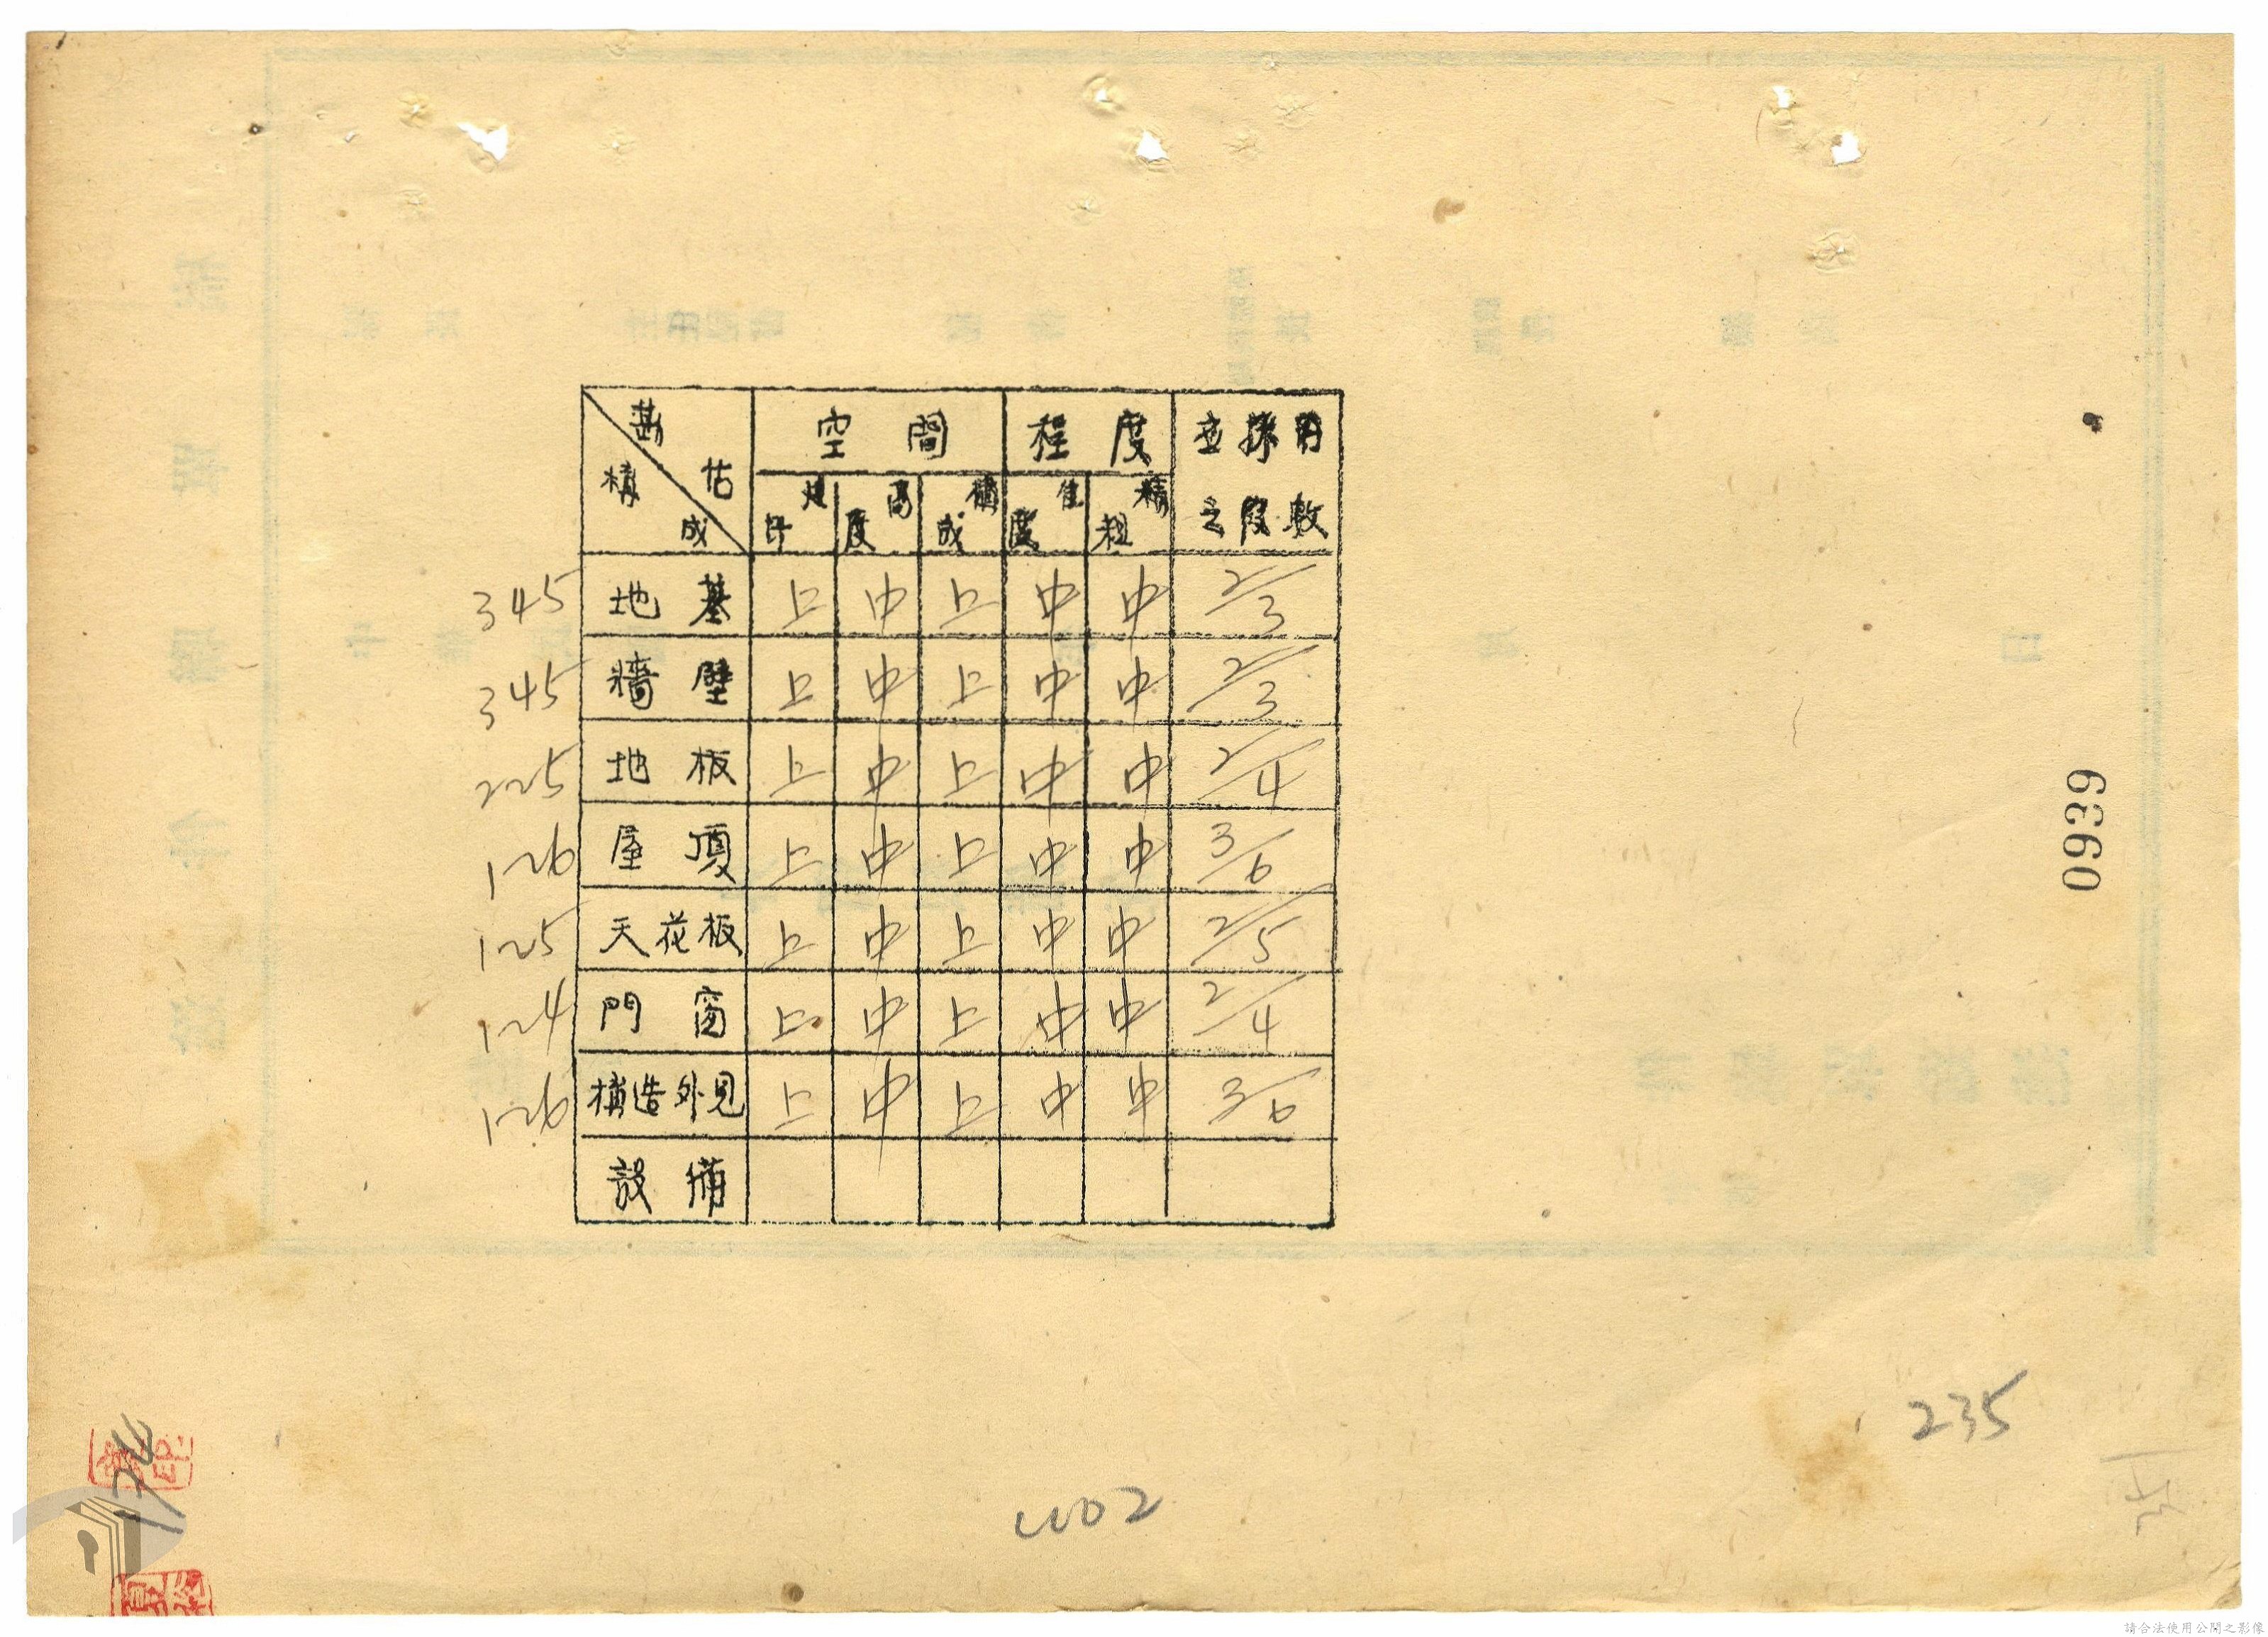 勘估 構成 空間 程度 並採用之段數
建坪 高度 構成 佳度 精粗
345 地基 上 中 上 中 中 2/3
345 牆壁 上 中 上 中 中 2/3
225 地板 上 中 上 中 中 2/4
126 屋頂 上 中 上 中 中 3/6
125 天花板 上 中 上 中 中 2/5
124 門窗 上 中 上 中 中 2/4
126 構造外見 上 中 上 中 中 3/6
設備
0639
235
請合法使用公開之影像